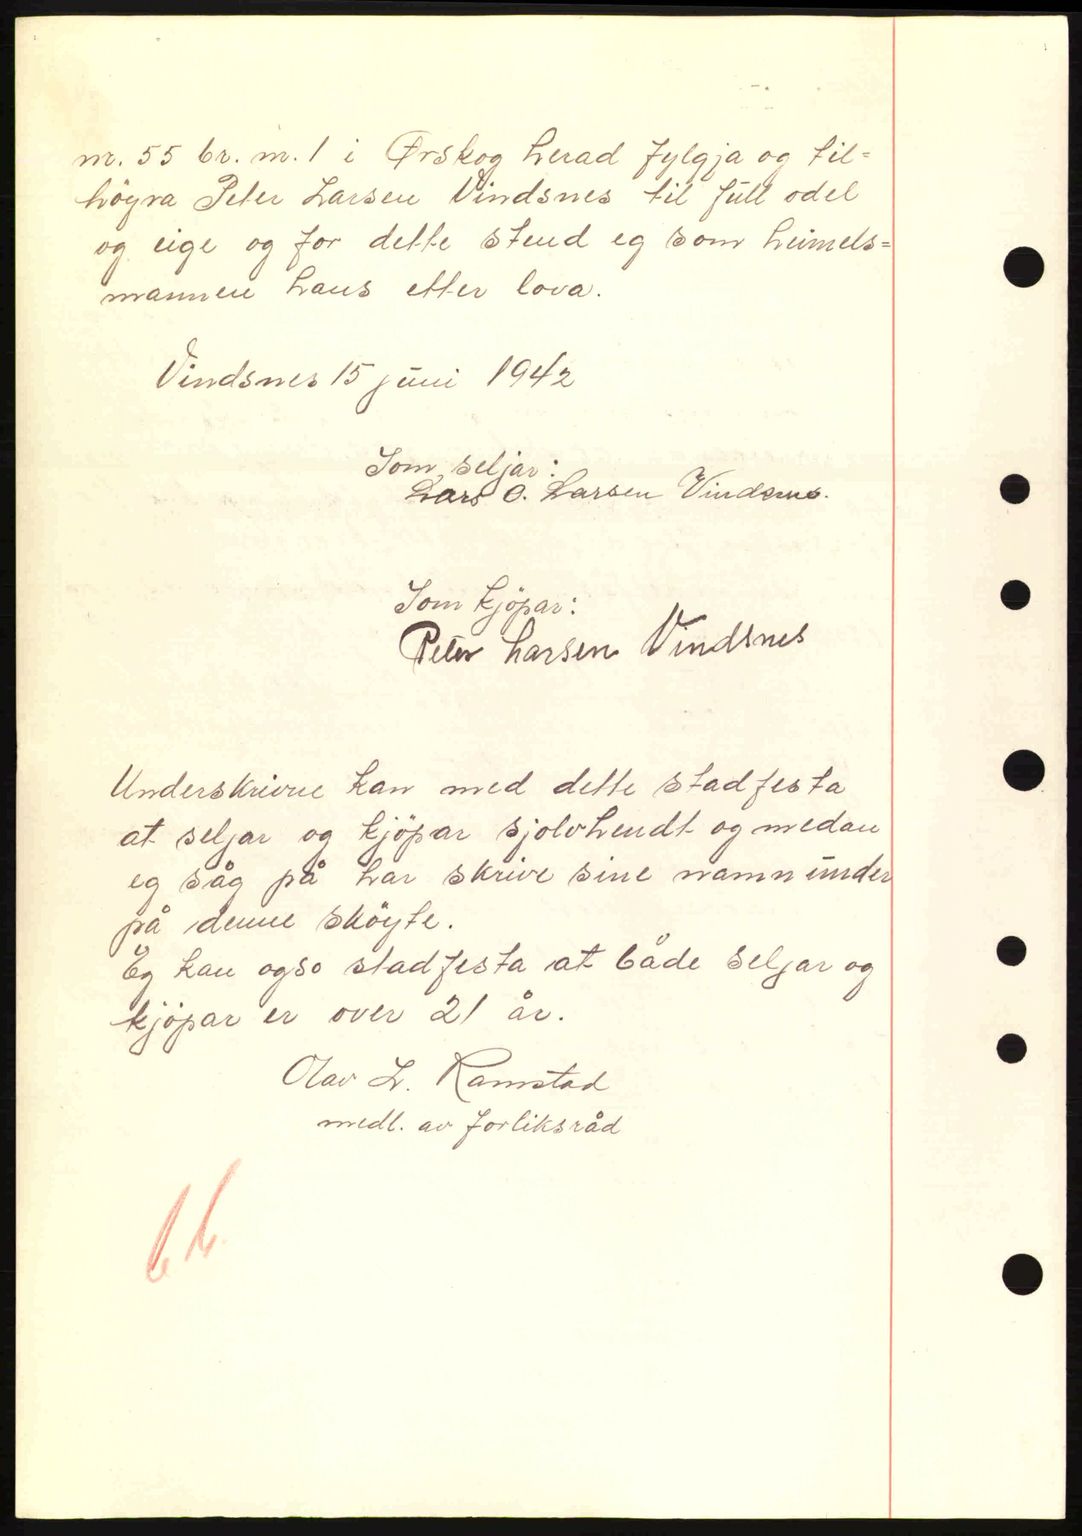 nr. 55 br. nr. 1 i Ørskog herad fylgja og til=
höyra Peter Larsen Vindsnes til full odel
og eige og for dette stend eg som heimels=
mannen hans etter lova.
Vindsnes 15 juni 1942
Som seljar:
Lars O. Larsen Vindsnes.
Som kjöpar:
Peter Larsen Vindsnes
Underskrivne kan med dette stadfesta
at seljar og kjöpar sjolvhendt og medan
eg såg på har skrive sine namn under
på denne sköyte.
Eg kan ogso stadfesta at både seljar og
kjöpar er over 21 år.
Olav L. Ramstad
medl. av forliksråd